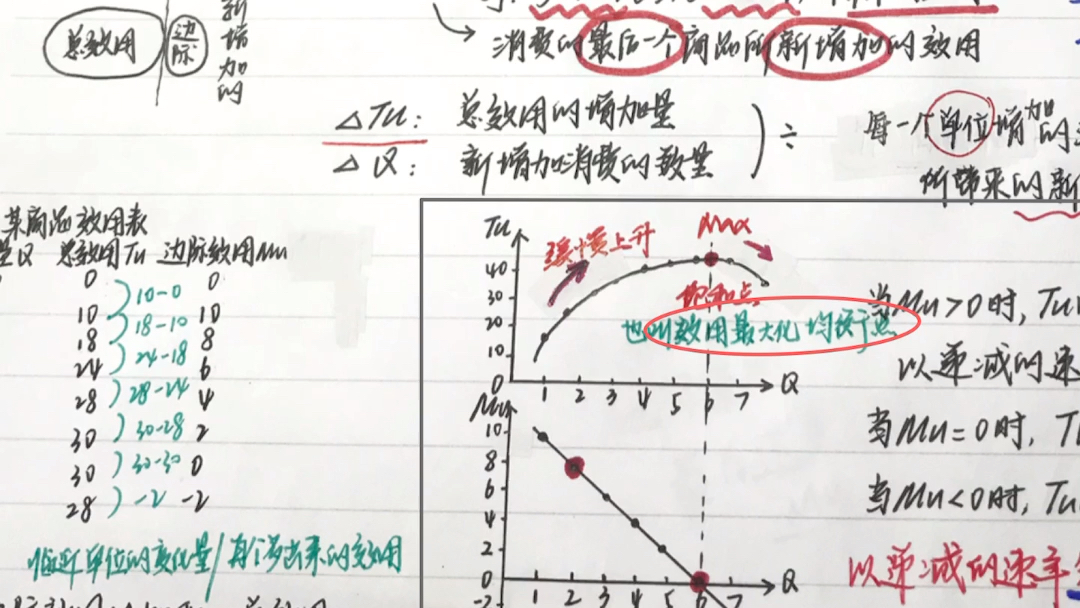 总效用 边际
新增加的
消费的最后一个商品所新增加的效用
△TU: 总效用的增加量
△Q: 新增加消费的数量
÷
每一个单位增加的
所带来的新
某商品效用表
量Q 总效用Tu 边际效用Mu
0 0
10-0
10 10
18-10
18 8
24-18
24 6
28-24
28 4
30-28
30 2
30-30
30 0
-2
28 -2
临近单位的变化量/再多出来的效用
Tu
缓慢上升
Max
40
30
20
10
0
饱和点
也叫效用最大化均衡点
1 2 3 4 5 6 7 Q
Mu
10
8
6
4
2
0
-2
1 2 3 4 5 6 7 Q
当Mu>0时, Tu
以递减的速
当Mu=0时, T
当Mu<0时, Tu
以递减的速率